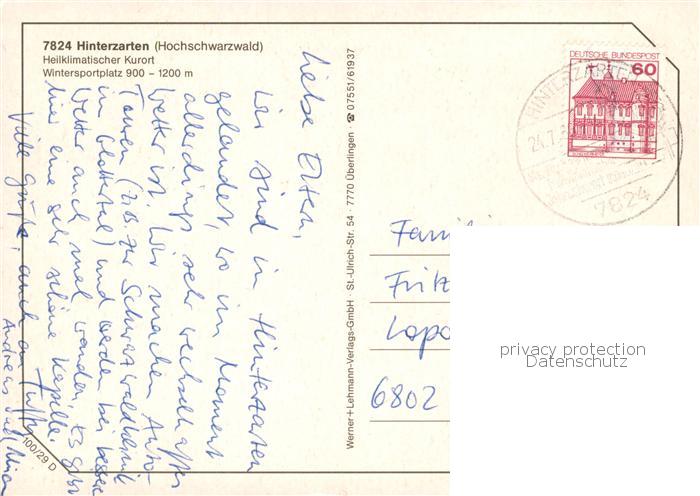 7824 Hinterzarten (Hochschwarzwald)
Heilklimatischer Kurort
Wintersportplatz 900 – 1200 m
Liebe Eltern,
wir sind in Hinterzarten
gelandet, wo im Moment
allerdings sehr wechselhaftes
Wetter ist. Wir machen Auto-
Touren (z.B. zur Schwarzwaldklinik
im Glottertal) und werden bei besserem
Wetter auch mal wandern. Es gibt
hier eine sehr schöne Kapelle.
Viele Grüße, auch an
Andreas und
100/29 D
Werner+Lehmann-Verlags-GmbH · St.-Ulrich-Str. 54 · 7770 Überlingen ☎ 07551/61937
DEUTSCHE BUNDESPOST
60
HINTERZARTEN
24.7.
7824
Famili
Fritz
6802
privacy protection
Datenschutz